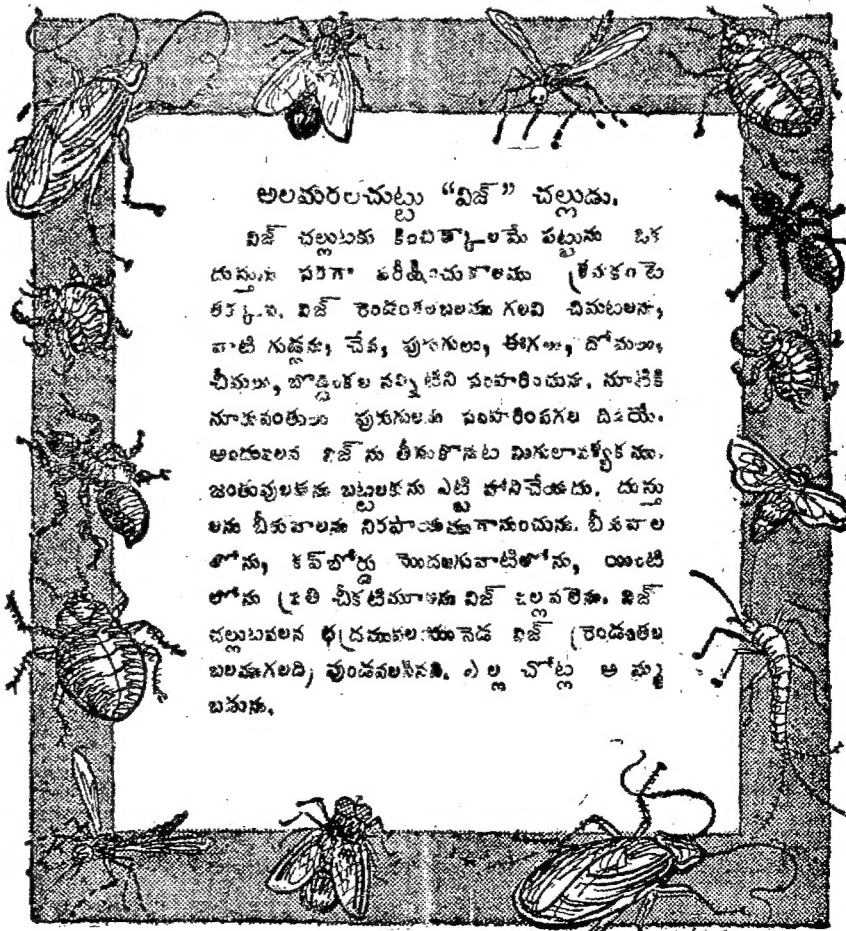 అలమరలచుట్టు “విజ్” చల్లుడు.
విజ్ చల్లుటకు కించిత్కాలమే పట్టును ఒక
దుస్తును పరీక్షించుకాలము
తక్కువ. విజ్ రెండంతలబలము గలవి చిమటలను,
వాటి గుడ్లను, చేప, పురుగులు, ఈగలు, దోమలు,
చీమలు, బొద్దింకల నన్నిటిని సంహరించును. నూటికి
నూరువంతులు పురుగులను సంహరింపగల దిదియే.
అందువలన విజ్ ను తీసుకొనుట మిగులావశ్యకము.
జంతువులకును బట్టలకును ఎట్టి హానిచేయదు. దుస్తు
లను బీరువాలను నిరపాయముగానుంచును. బీరువాల
లోను, కప్‌బోర్డు మొదలగువాటిలోను, యింటి
లోను ప్రతి చీకటిమూలను విజ్ చల్లవలెను. విజ్
చల్లుటవలన భద్రముకలుగునెడ విజ్ (రెండంతల
బలముగలది) వుండవలసినది. ఎల్ల చోట్ల అమ్మ
బడును.